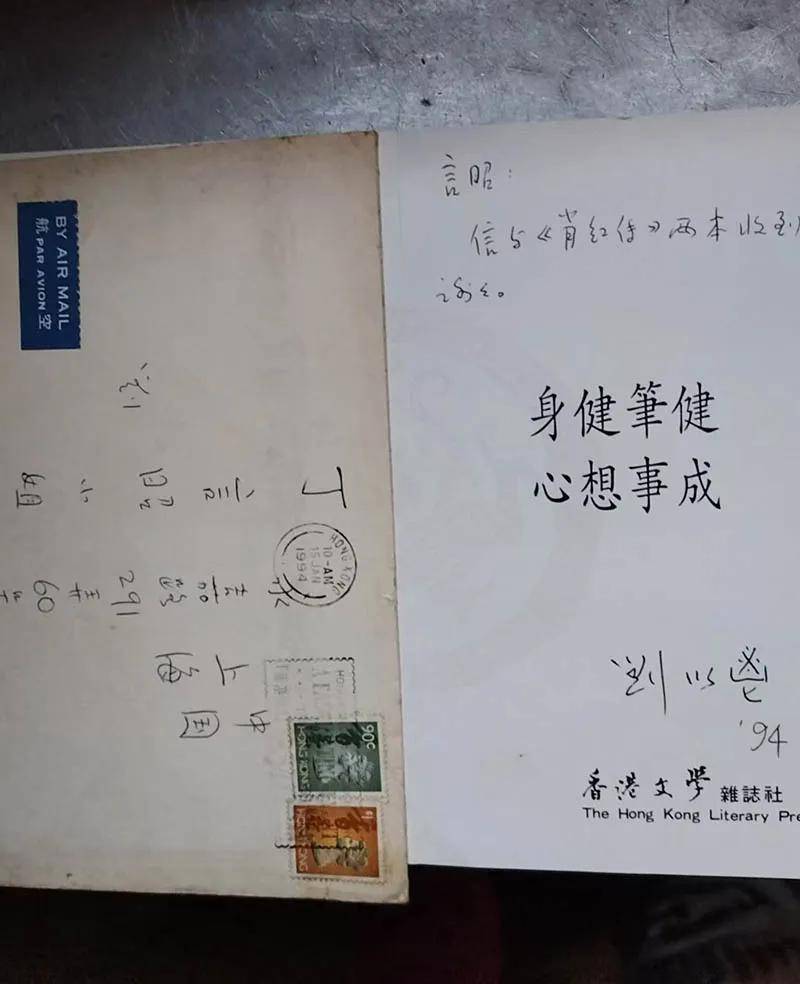 BY AIR MAIL
航 PAR AVION 空
中国
上海
永嘉路291弄60
丁言昭小姐
刘
HONG KONG
10-AM
15 JAN
1994
90c
HONG KONG
$1
HONG KONG
言昭：
信与《肖红传》两本收到
谢谢。
身健筆健
心想事成
劉以鬯
'94
香港文學 雜誌社
The Hong Kong Literary Pre